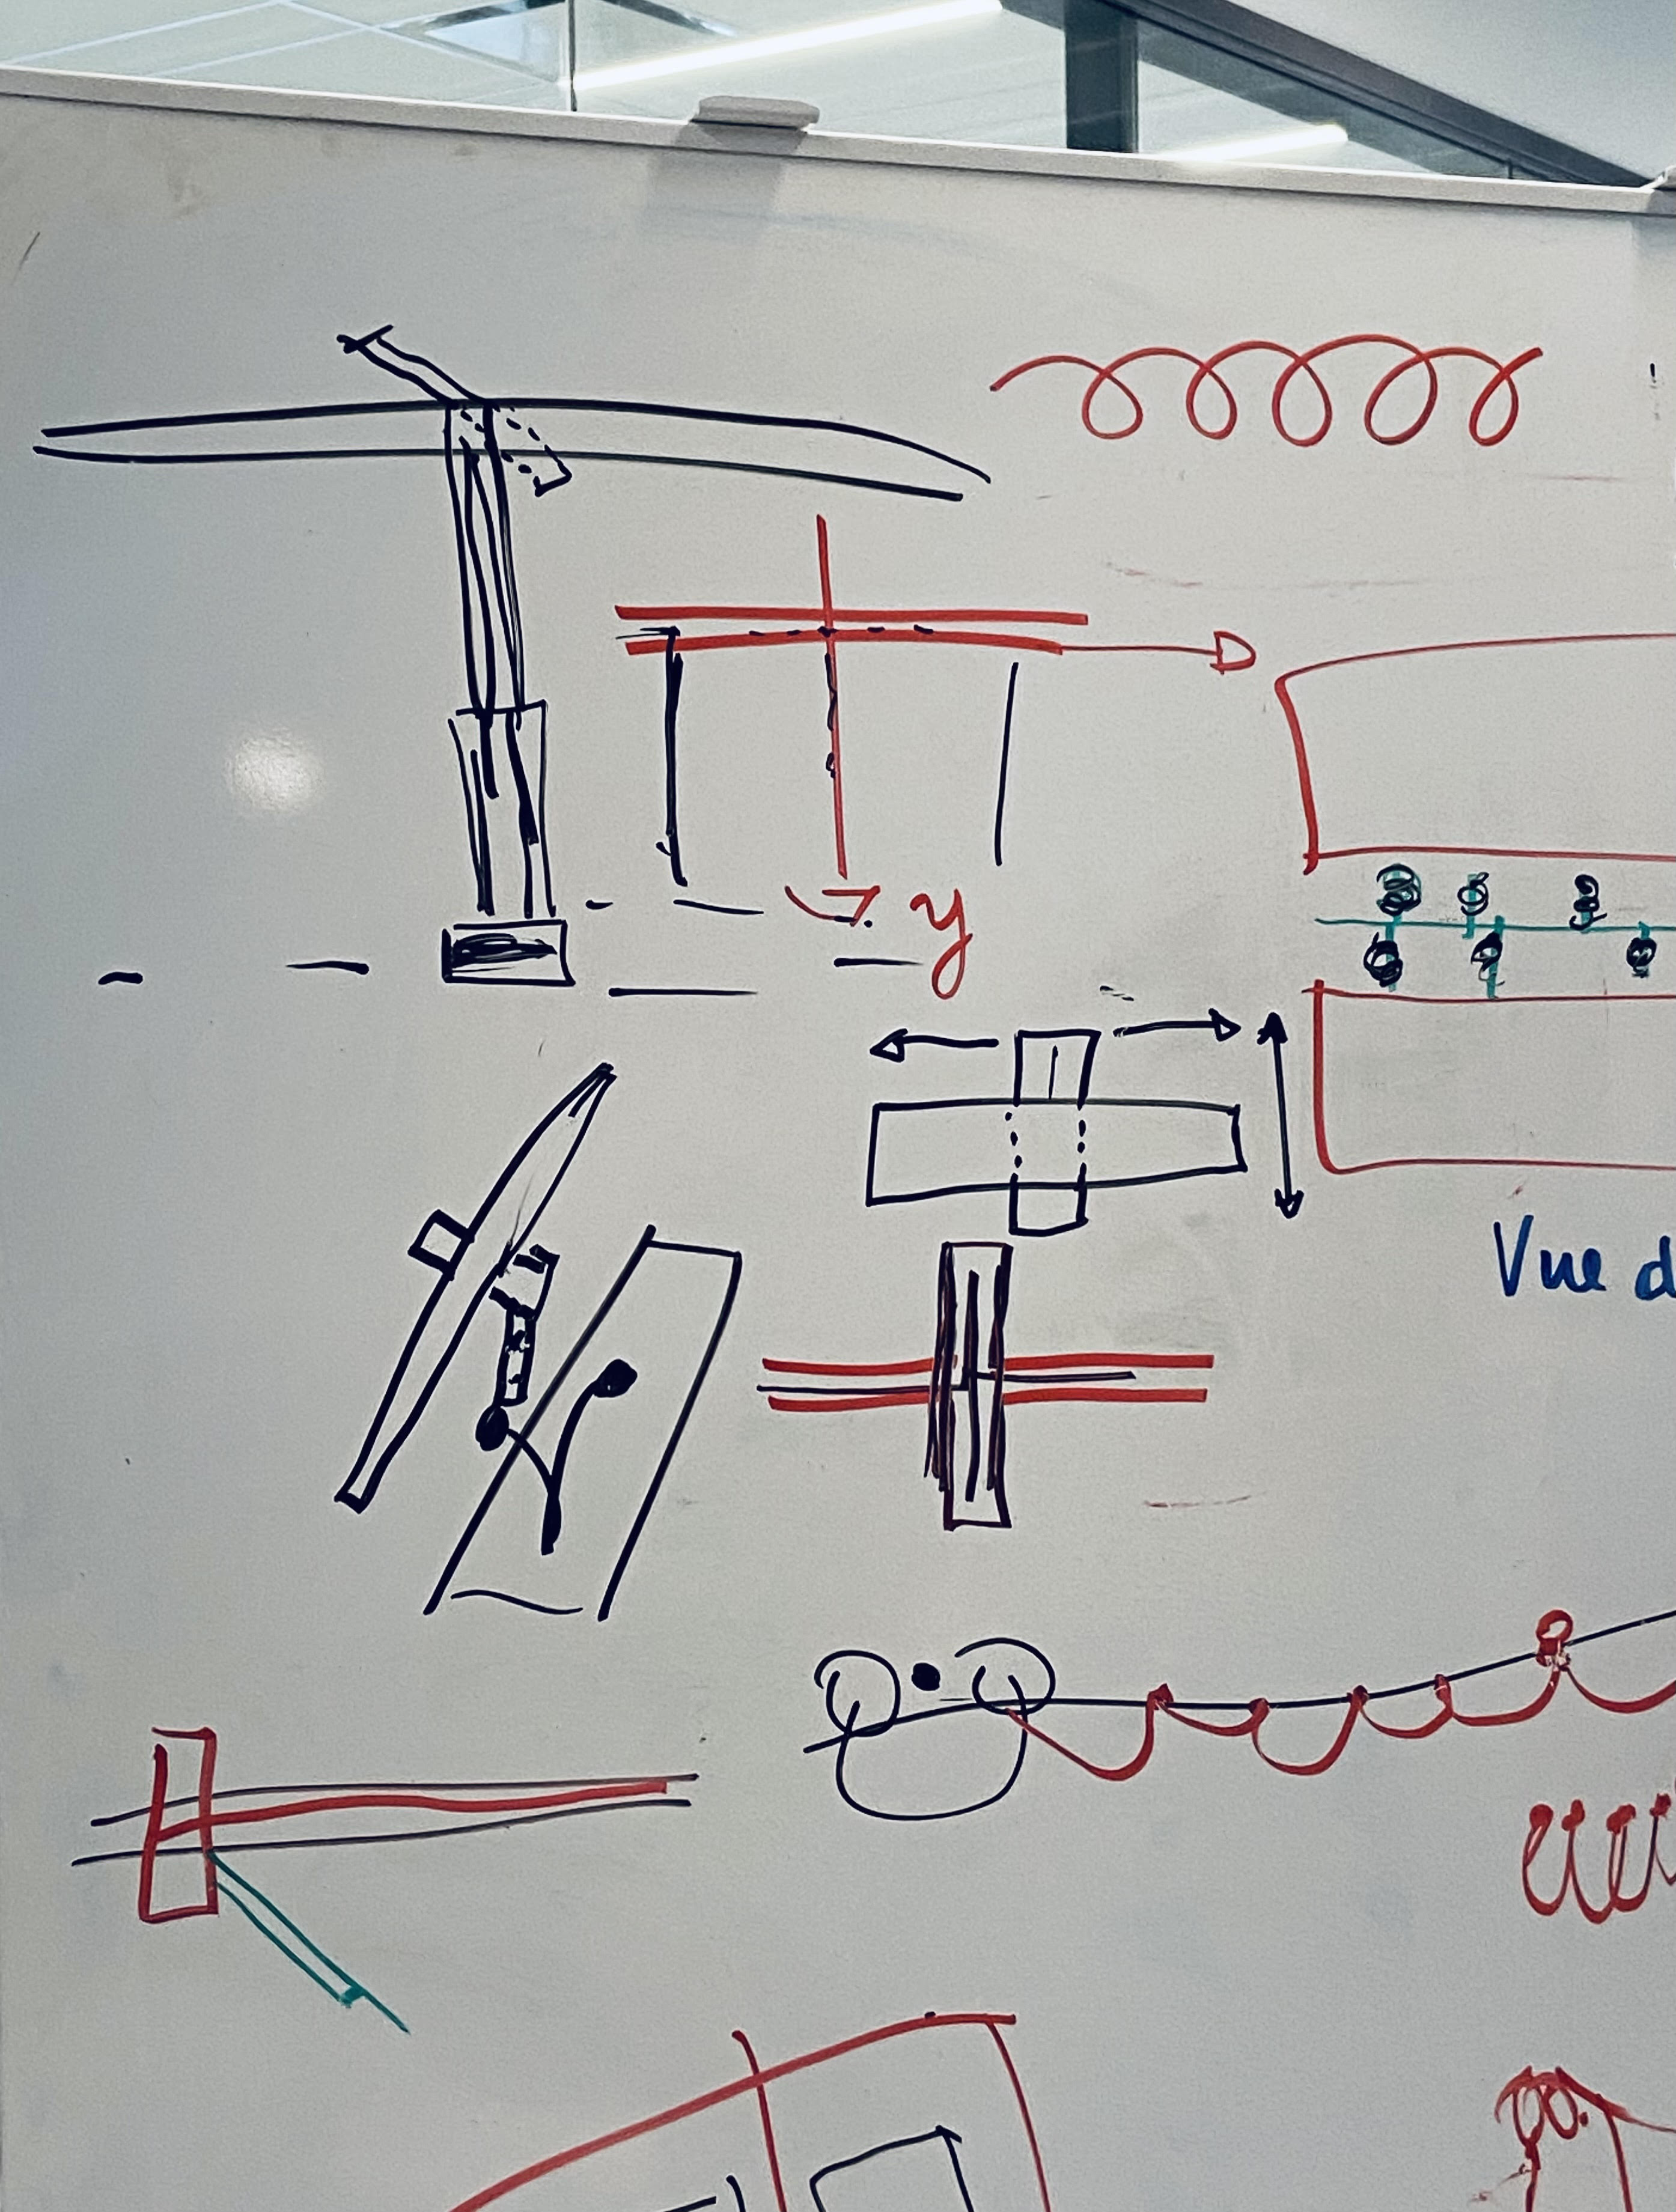 y
Vue d